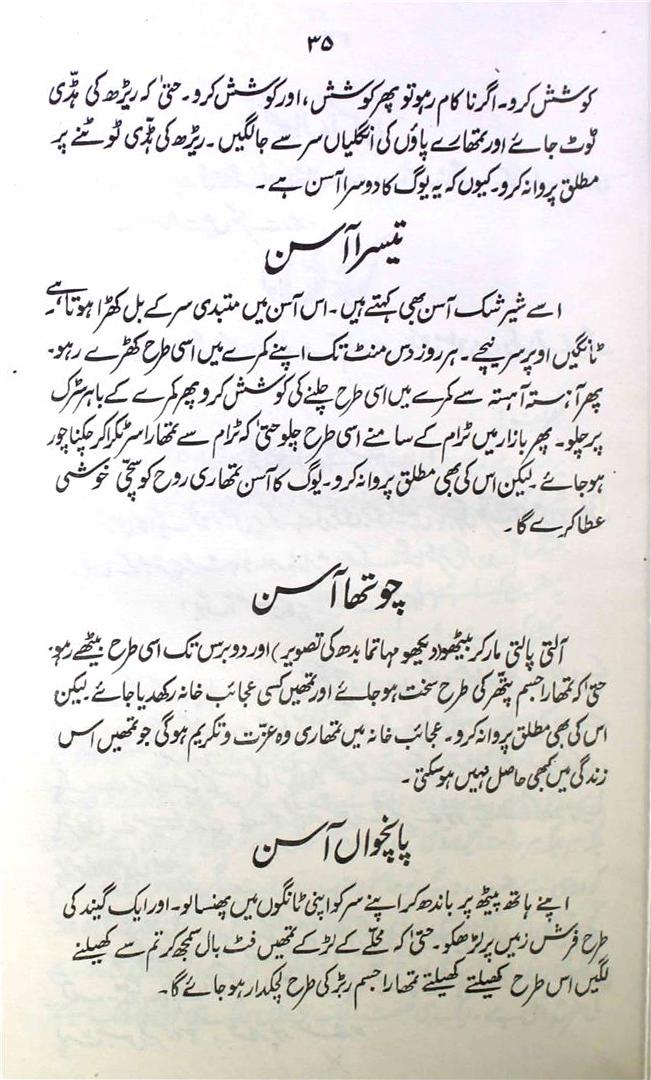 ۳۵
کوشش کرو۔ اگر ناکام رہو تو پھر کوشش، اور کوشش کرو۔ حتیٰ کہ ریڑھ کی ہڈّی
ٹوٹ جائے اور تمھارے پاؤں کی انگلیاں سر سے جا لگیں۔ ریڑھ کی ہڈّی ٹوٹنے پر
مطلق پروا نہ کرو۔ کیوں کہ یہ یوگ کا دوسرا آسن ہے۔
تیسرا آسن
اسے شیر شک آسن بھی کہتے ہیں۔ اس آسن میں متبدی سر کے بل کھڑا ہوتا ہے۔
ٹانگیں اوپر سر نیچے۔ ہر روز دس منٹ تک اپنے کمرے میں اسی طرح کھڑے رہو۔
پھر آہستہ آہستہ سے کمرے میں اسی طرح چلنے کی کوشش کرو پھر کمرے کے باہر سڑک
پر چلو۔ پھر بازار میں ٹرام کے سامنے اسی طرح چلو حتیٰ کہ ٹرام سے تمھارا سر ٹکرا کر چکنا چور
ہو جائے۔ لیکن اس کی بھی مطلق پروا نہ کرو۔ یوگ کا آسن تمھاری روح کو سچّی خوشی
عطا کرے گا۔
چوتھا آسن
آلتی پالتی مار کر بیٹھو (دیکھو مہاتما بدھ کی تصویر) اور دو برس تک اسی طرح بیٹھے رہو۔
حتیٰ کہ تمھارا جسم پتھّر کی طرح سخت ہو جائے اور تمھیں کسی عجائب خانہ رکھدیا جائے۔ لیکن
اس کی بھی مطلق پروا نہ کرو۔ عجائب خانہ میں تمھاری وہ عزّت و تکریم ہوگی جو تمھیں اس
زندگی میں کبھی حاصل نہیں ہو سکتی۔
پانچواں آسن
اپنے ہاتھ پیٹھ پر باندھ کر اپنے سر کو اپنی ٹانگوں میں پھنسا لو۔ اور ایک گیند کی
طرح فرش زمیں پر لڑھکو۔ حتیٰ کہ محلّے کے لڑکے تمھیں فٹ بال سمجھ کر تم سے کھیلنے
لگیں اس طرح کھیلتے کھیلتے تمھارا جسم ربڑ کی طرح لچکدار ہو جائے گا۔